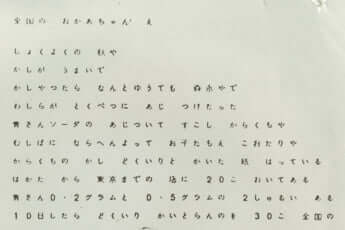 全国の おかあちゃん え
しょくよくの 秋や
かしが うまいで
かしやつたら なんとゆうても 森永やで
わしらが とくべつに あじ つけたった
青さんソーダの あじついて すこし からくもや
むしばに ならへんよって お子たちえ こおたりや
からくちの かし どくいりと かいた 紙 はっている
はかた から 東京までの 店に 20こ おいてある
青さん0・2グラムと 0・5グラムの 2しゅるい ある
10日したら どくいり かいとらんのを 30こ 全国の